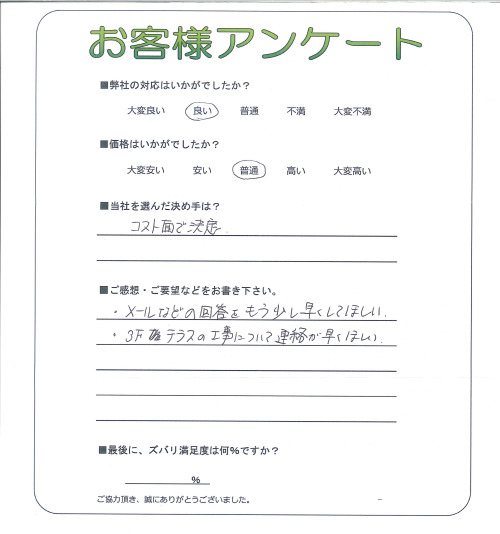 お客様アンケート
■弊社の対応はいかがでしたか？
大変良い　良い　普通　不満　大変不満
■価格はいかがでしたか？
大変安い　安い　普通　高い　大変高い
■当社を選んだ決め手は？
コスト面で決定.
■ご感想・ご要望などをお書き下さい。
・メールなどの回答をもう少し早くしてほしい.
・3F テラスの工事について連絡が早くほしい.
■最後に、ズバリ満足度は何%ですか？
%
ご協力頂き、誠にありがとうございました。